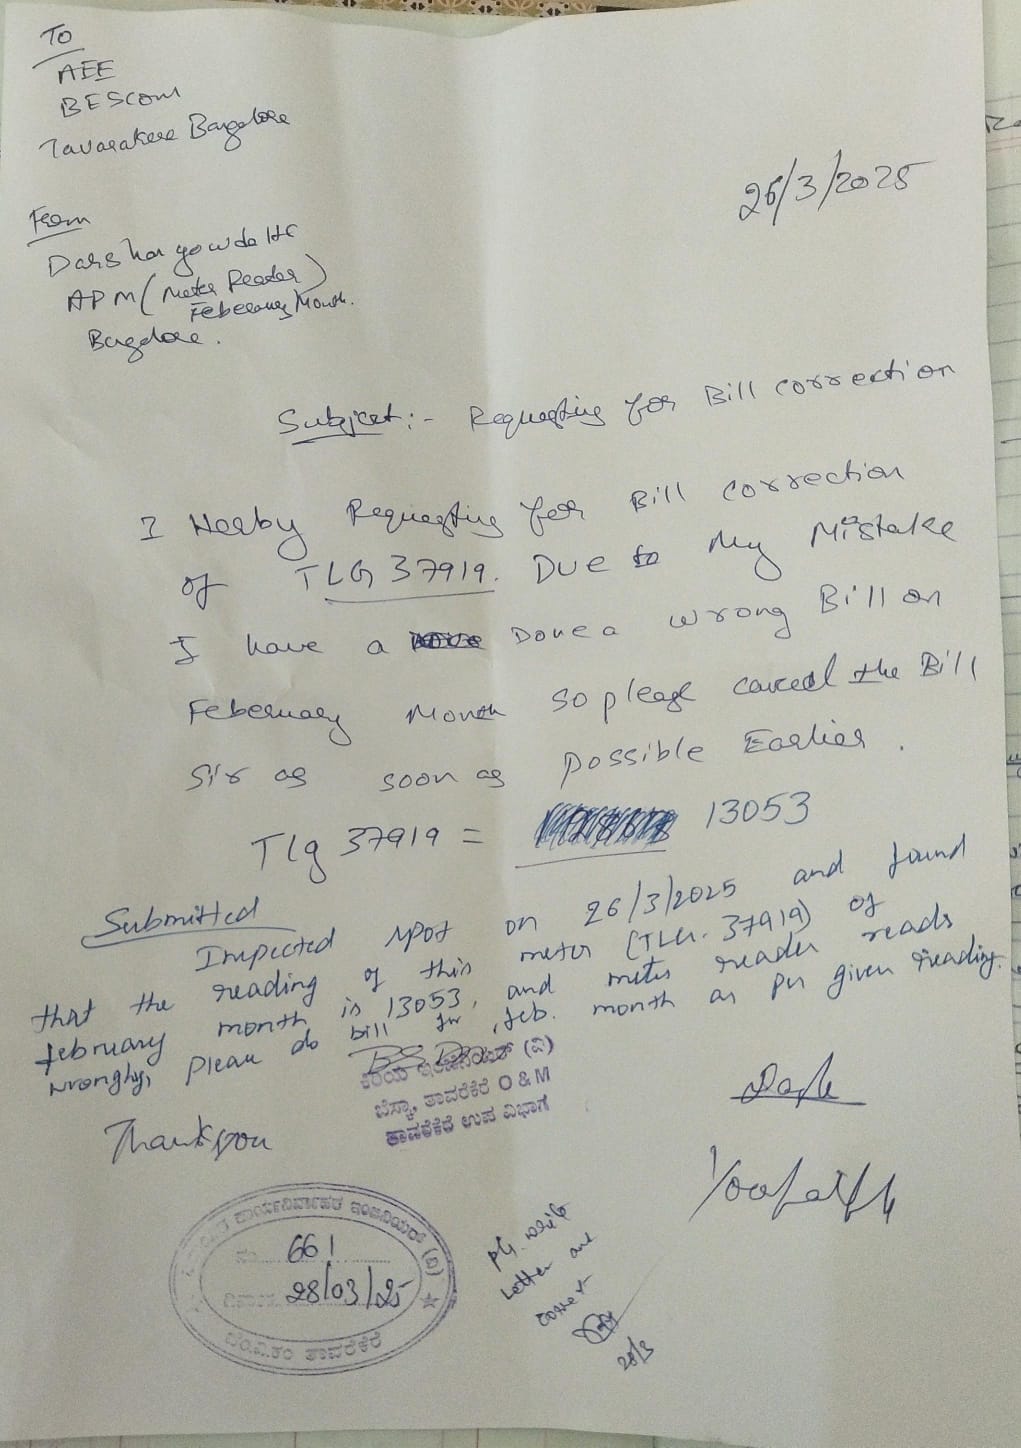 To
AEE
BESCOM
Tavarakere Bangalore
26/3/2025
From
Darshan gowda HC
APM (Meter Reader)
Feberuary Month.
Bangalore.
Subject:- Requesting for Bill correction
I Herby Requesting for Bill correction
of TLG 37919. Due to My Mistake
I have a Done a wrong Bill on
Feberuary Month so please cancel the Bill
sir as soon as possible Earlier.
Tlg 37919 = 13053
Submitted
Inspected spot on 26/3/2025 and found
that the reading of this meter (TLG. 37919) of
february month is 13053, and meter reader reads
wrongly, please do bill for feb. month as per given reading.
ಕಿರಿಯ ಇಂಜಿನಿಯರ್ (ವಿ)
ಬೆಸ್ಕಾಂ, ತಾವರೆಕೆರೆ O & M
ತಾವರೆಕೆರೆ ಉಪ ವಿಭಾಗ
Thank you
ಕಾರ್ಯನಿರ್ವಾಹಕ ಇಂಜಿನಿಯರ್ (ವಿ)
661
28/03/25
ಬೆಂ.ವಿ.ಕಂ ತಾವರೆಕೆರೆ
Letter and
28/3